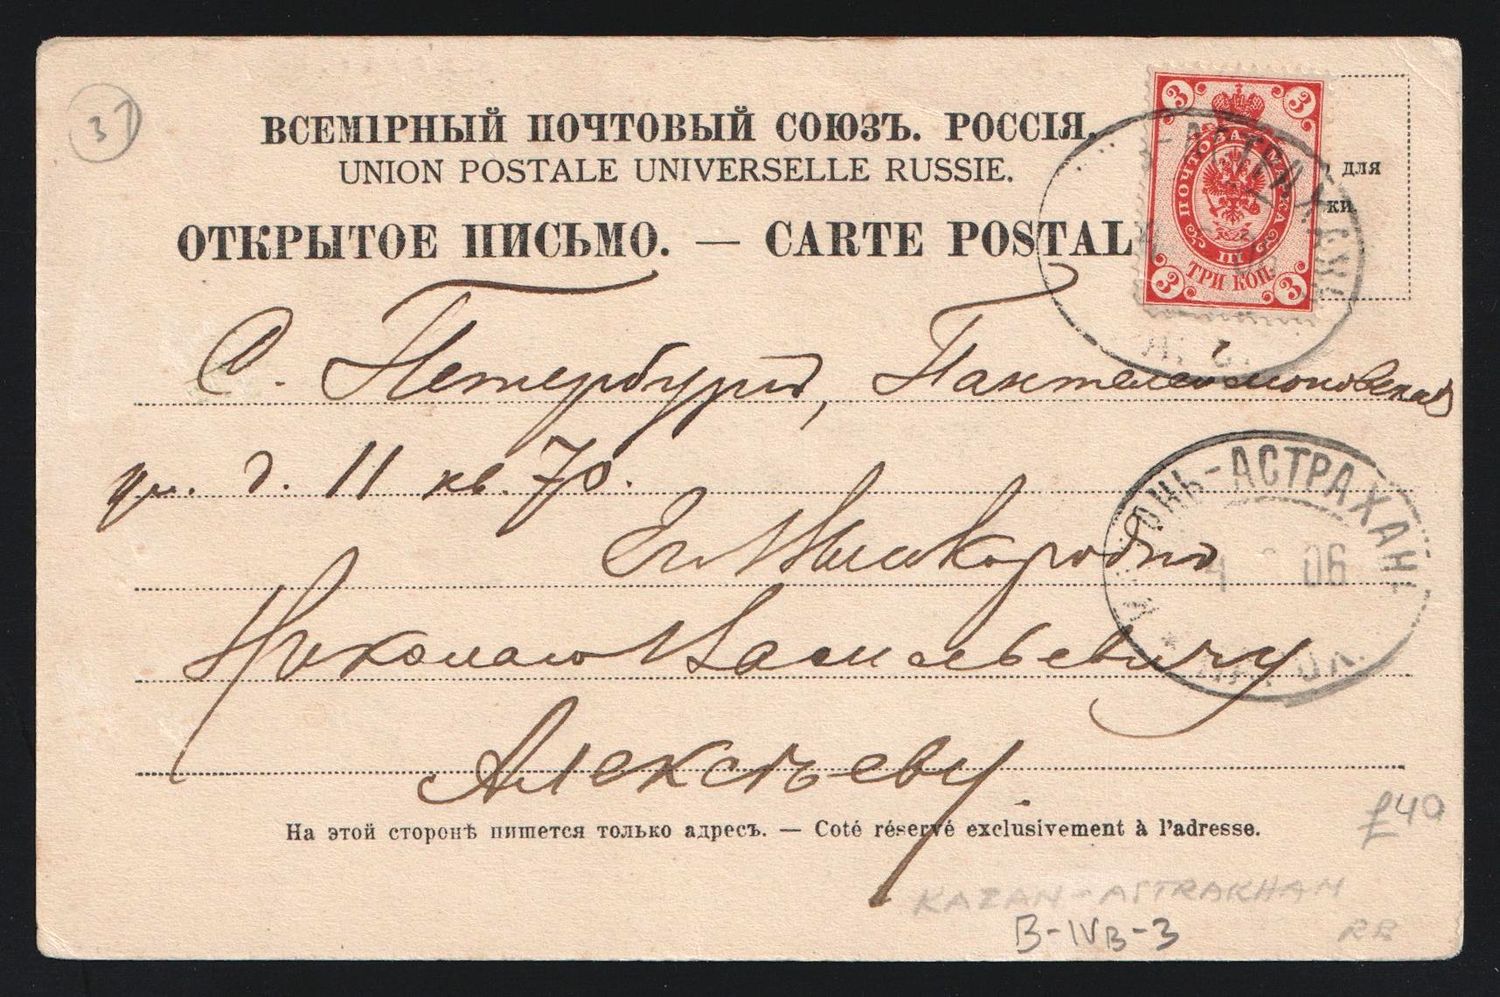 37
ВСЕМІРНЫЙ ПОЧТОВЫЙ СОЮЗЪ. РОССІЯ.
UNION POSTALE UNIVERSELLE RUSSIE.
ОТКРЫТОЕ ПИСЬМО. — CARTE POSTAL
для
ки
3 3
ПОЧТОВАЯ МАРКА
III
ТРИ КОП.
3 3
-АСТРАХАНЬ
С. Петербургъ, Пантелеомоновская
ул. д. 11 кв. 70.
Николаю Васильевичу
Алексѣеву
-АСТРАХАНЬ
4 06
На этой сторонѣ пишется только адресъ. — Coté réservé exclusivement à l'adresse.
£40
KAZAN-ASTRAKHAN
B-IVB-3
RR